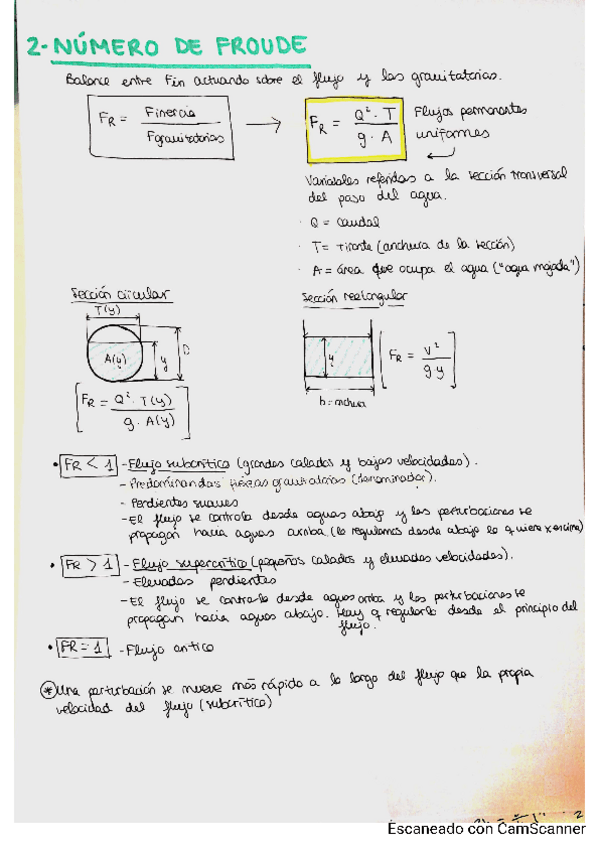 2- NÚMERO DE FROUDE
Balance entre Fin actuando sobre el flujo y las gravitatorias.
FR = Finercia / Fgravitatorias → FR = Q² · T / g · A Flujos permanentes uniformes
Variables referidas a la sección transversal
del paso del agua.
· Q = caudal
· T = tirante (anchura de la sección)
· A = área que ocupa el agua ("agua mojada")
Sección circular
T(y)
A(y) y D
[FR = Q² · T(y) / g · A(y)]
Sección rectangular
y
b = anchura
[FR = v² / g y]
• FR < 1 - Flujo subcrítico (grandes calados y bajas velocidades).
- Predominando fuerzas gravitatorias (denominador).
- Pendientes suaves
- El flujo se controla desde aguas abajo y las perturbaciones se
propagan hacia aguas arriba. (lo regulamos desde abajo lo q viene x encima)
• FR > 1 - Flujo supercrítico (pequeños calados y elevadas velocidades).
- Elevadas pendientes
- El flujo se controla desde aguas arriba y las perturbaciones se
propagan hacia aguas abajo. Hay q regularlo desde el principio del
flujo.
• FR = 1 - Flujo crítico
* Una perturbación se mueve más rápido a lo largo del flujo que la propia
velocidad del flujo (subcrítico)
2
Escaneado con CamScanner